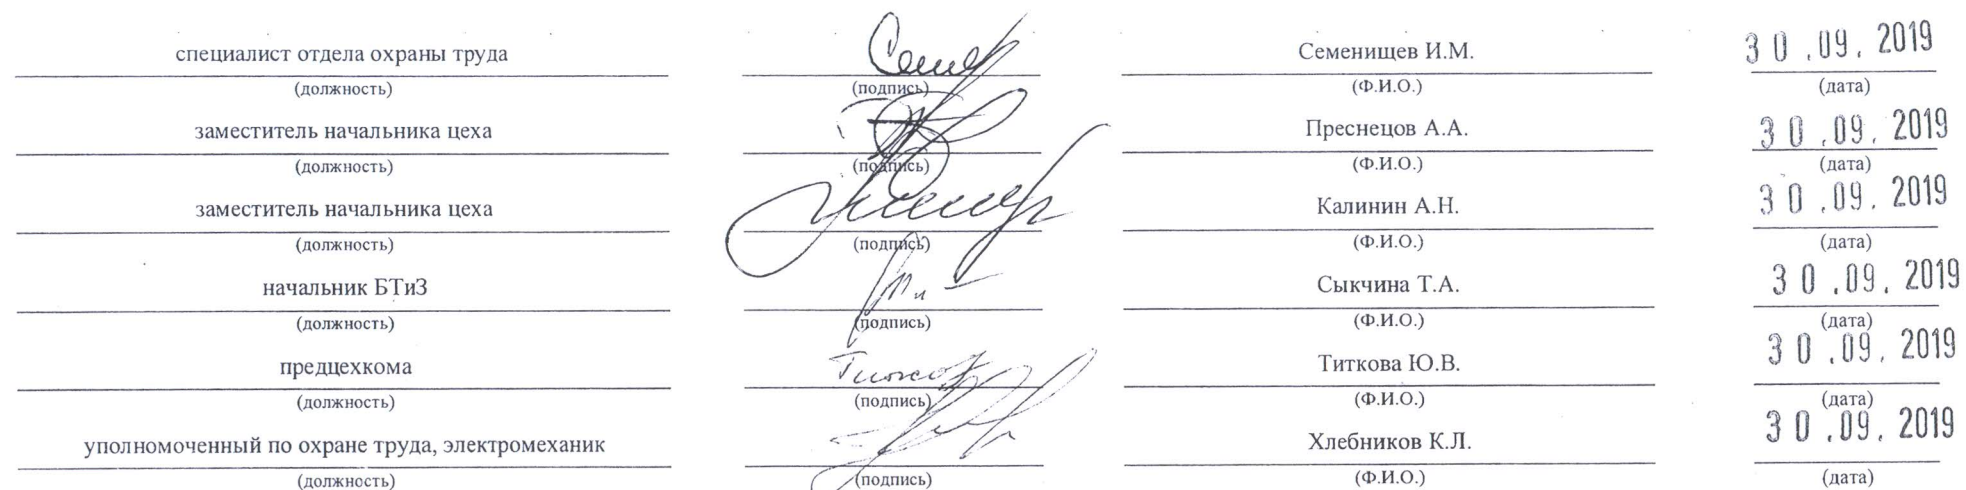 специалист отдела охраны труда Семенищев И.М. 30.09.2019
(должность) (подпись) (Ф.И.О.) (дата)
заместитель начальника цеха Преснецов А.А. 30.09.2019
(должность) (подпись) (Ф.И.О.) (дата)
заместитель начальника цеха Калинин А.Н. 30.09.2019
(должность) (подпись) (Ф.И.О.) (дата)
начальник БТиЗ Сыкчина Т.А. 30.09.2019
(должность) (подпись) (Ф.И.О.) (дата)
предцехкома Титкова Ю.В. 30.09.2019
(должность) (подпись) (Ф.И.О.) (дата)
уполномоченный по охране труда, электромеханик Хлебников К.Л. 30.09.2019
(должность) (подпись) (Ф.И.О.) (дата)